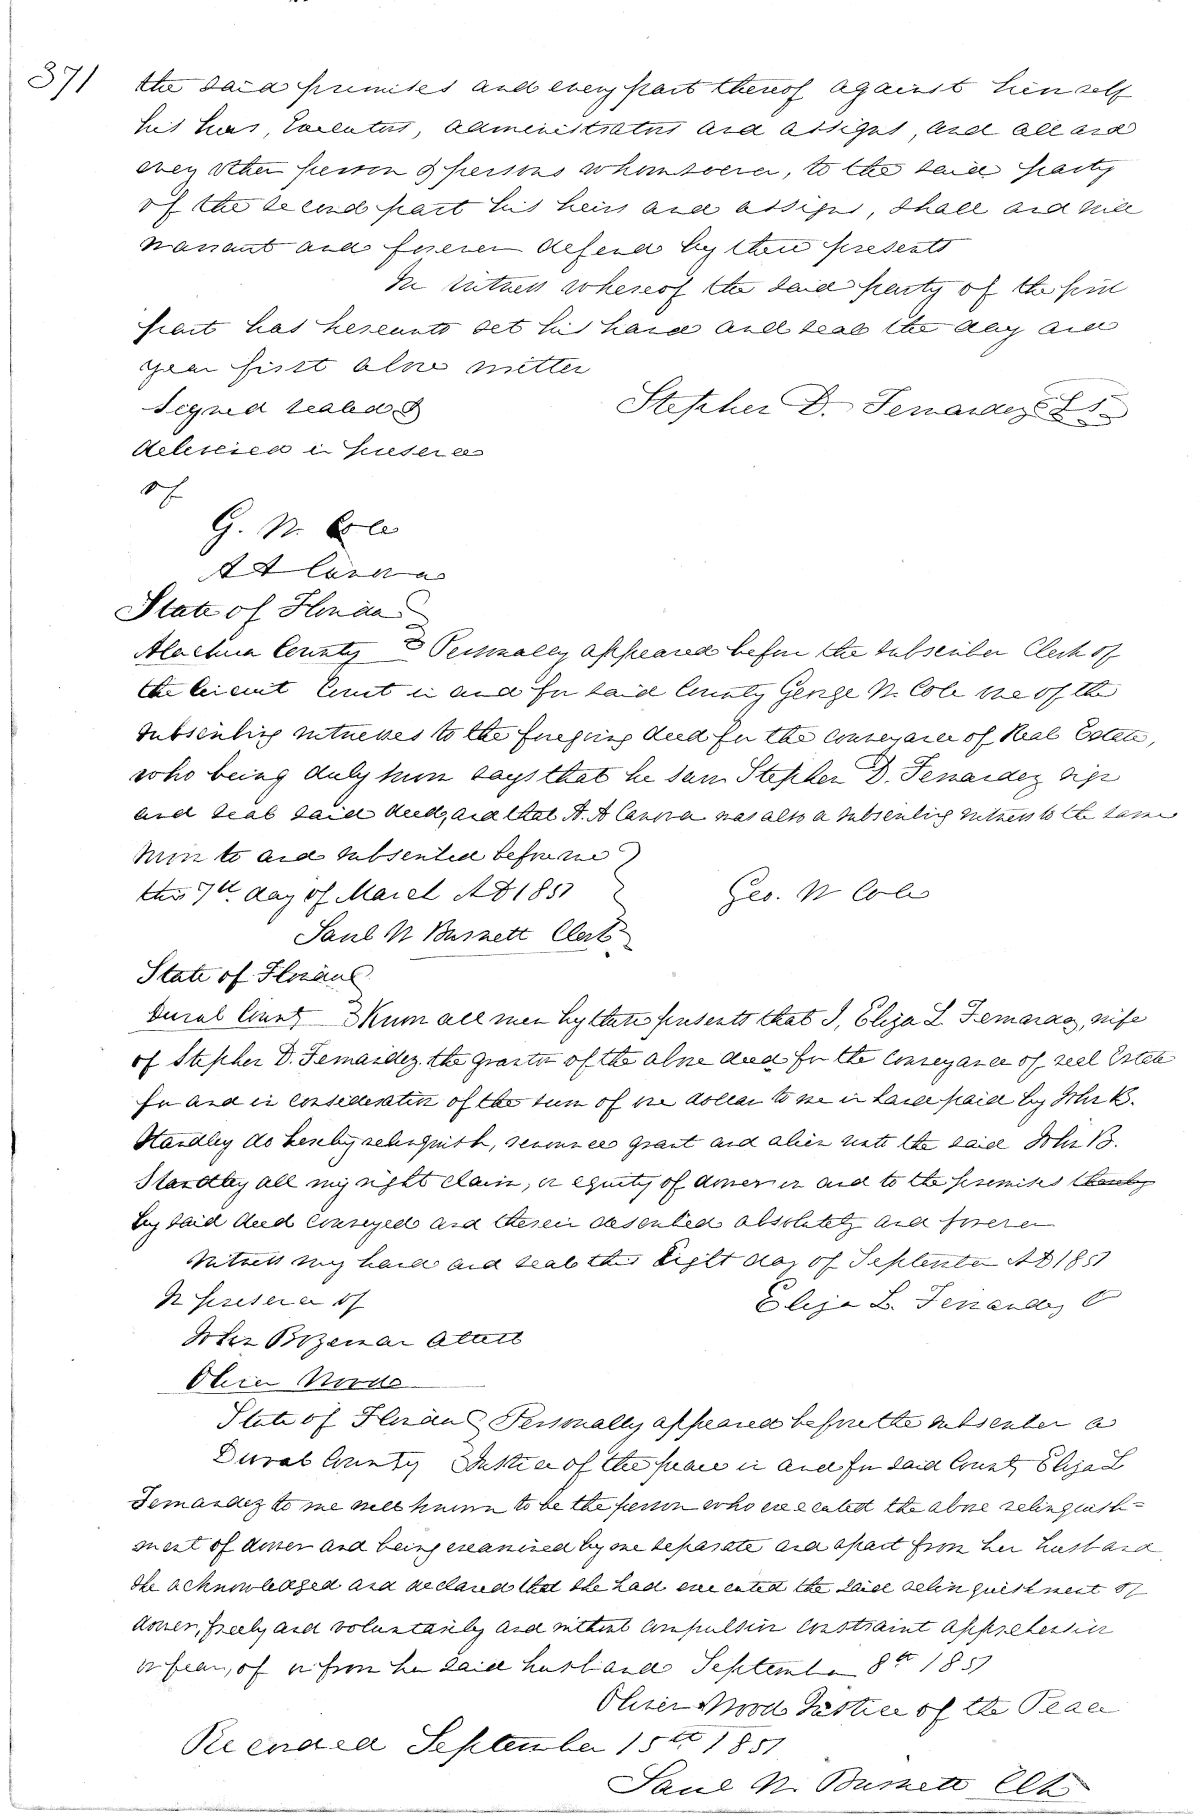 371
the said premises and every part thereof against himself
his heirs, Executors, administrators and assigns, and all and
every other person & persons whomsoever, to the said party
of the second part his heirs and assigns, shall and will
warrant and forever defend by these presents
In witness whereof the said party of the first
part has hereunto set his hand and seal the day and
year first above written
Signed sealed & Stephen D. Fernandez LS.
delivered in presence
of
G. W. Cole
A A Canova
State of Florida
Alachua County Personally appeared before the subscriber Clerk of
the Circuit Court in and for said County George W. Cole one of the
subscribing witnesses to the foregoing deed for the conveyance of Real Estate,
who being duly sworn says that he saw Stephen D. Fernandez sign
and seal said deed, and that A. A Canova was also a subscribing witness to the same
Sworn to and subscribed before me
this 7th day of March AD 1851 Geo. W Cole
Saml N Burnett Clerk
State of Florida
Duval County Know all men by these presents that I, Eliza L Fernandez, wife
of Stephen D. Fernandez the grantor of the above deed for the conveyance of real Estate
for and in consideration of the sum of one dollar to me in hand paid by John B.
Standley do hereby relinquish, renounce grant and alien unto the said John B.
Standley all my right claim, or equity of dower in and to the premises thereby
by said deed conveyed and therein described absolutely and forever
Witness my hand and seal this Eight day of September AD 1851
In presence of Eliza L. Fernandez
John Bozeman
Oliver Wood
State of Florida Personally appeared before the subscriber a
Duval County Justice of the peace in and for said County Eliza L
Fernandez to me well known to be the person who executed the above relinquish=
ment of dower and being examined by me separate and apart from her husband
she acknowledged and declared that she had executed the said relinquishment of
dower, freely and voluntarily and without compulsion constraint apprehension
or fear, of or from her said husband September 8th 1851
Oliver Wood Justice of the Peace
Recorded September 15th 1851
Saml N. Burnett Clk